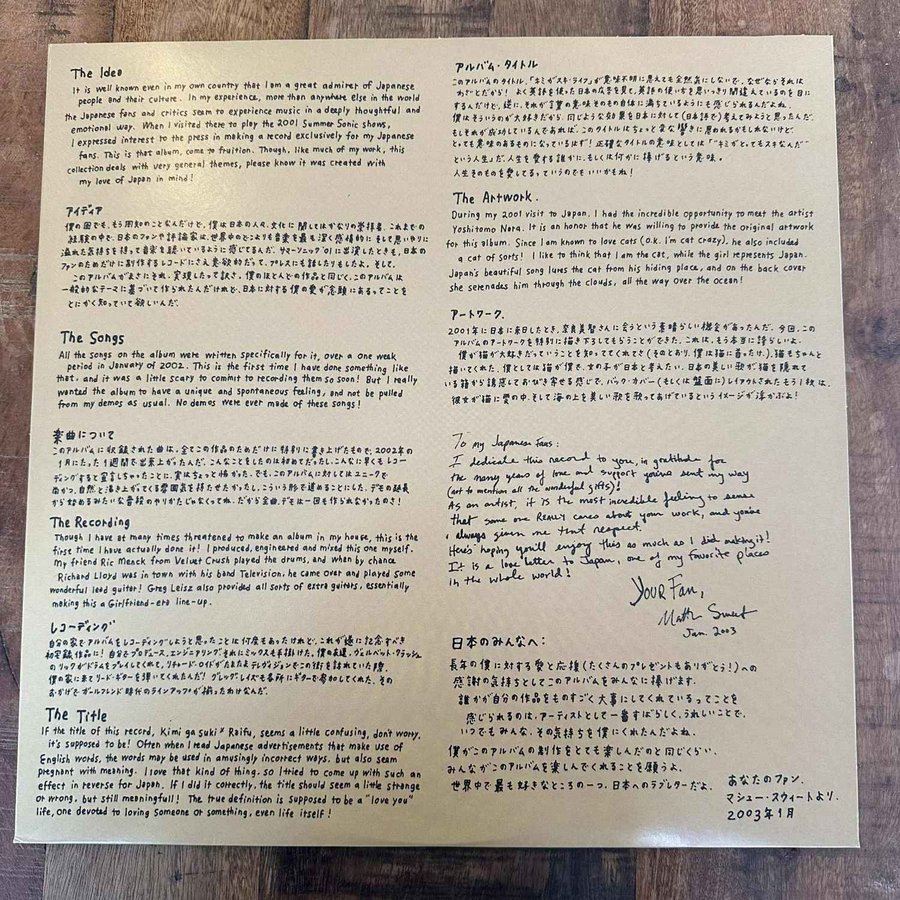 The Idea
It is well known even in my own country that I am a great admirer of Japanese
people and their culture. In my experience, more than anywhere else in the world
the Japanese fans and critics seem to experience music in a deeply thoughtful and
emotional way. When I visited there to play the 2001 Summer Sonic shows,
I expressed interest to the press in making a record exclusively for my Japanese
fans. This is that album, come to fruition. Though, like much of my work, this
collection deals with very general themes, please know it was created with
my love of Japan in mind!
アイディア
僕の国でも、もう周知のことなんだけど、僕は日本の人々、文化に関してはかなりの崇拝者。これまでの
経験の中で、日本のファンや評論家は、世界中のどこよりも音楽を最も深く感情的に、そして思いやりに
溢れた気持ちを持って音楽を聴いているように感じてるんだ。サマーソニック'01に出演したときも、日本の
ファンのためだけに創作するレコードにさえ意欲的だって、プレスにも話したりもしたよ。そして、
このアルバムがまさにそれ。実現したって訳さ。僕のほとんどの作品と同じく、このアルバムは
一般的なテーマに基づいて作られたんだけれど、日本に対する僕の愛が念頭にあるってことを
とにかく知っていて欲しいんだ。
The Songs
All the songs on the album were written specifically for it, over a one week
period in January of 2002. This is the first time I have done something like
that, and it was a little scary to commit to recording them so soon! But I really
wanted the album to have a unique and spontaneous feeling, and not be pulled
from my demos as usual. No demos were ever made of these songs!
楽曲について
このアルバムに収録された曲は、全てこの作品のためだけに特別に書き上げたもので、2002年の
1月にたった1週間で出来上がったんだ。こんなことをしたのは初めてだったし、こんなに早くもレコー
ディングすると宣言しちゃったことに、実はちょっと怖かった。でも、このアルバムに対してはユニークで
尚かつ、自然と湧き上がってくる雰囲気を持たせたかったし、こういう形で進めることにした。デモの延長
から始めるみたいな普段のやりかたじゃなくってね。だから全曲、デモは一回も作られないんだのさ!
The Recording
Though I have at many times threatened to make an album in my house, this is the
first time I have actually done it! I produced, engineered and mixed this one myself.
My friend Ric Menck from Velvet Crush played the drums, and when by chance
Richard Lloyd was in town with his band Television, he came over and played some
wonderful lead guitar! Greg Leisz also provided all sorts of extra guitars, essentially
making this a Girlfriend-era line-up.
レコーディング
自分の家でアルバムをレコーディングしようと思ったことは何度もあったけれど、これが遂に記念すべき
初完録作品に! 自分でプロデュース、エンジニアリング、それにミックスも手掛けた。僕の友達、ヴェルベット・クラッシュ
のリックがドラムをプレイしてくれて、リチャード・ロイドがたまたまテレヴィジョンでこの街を訪れていた際、
僕の家に来てリード・ギターを弾いてくれたんだ! グレッグ・レイズも各所にギターで参加してくれた。その
おかげで ガールフレンド時代のラインアップが揃ったわけなんだ。
The Title
If the title of this record, Kimi ga suki* Raifu, seems a little confusing, don't worry,
it's supposed to be! Often when I read Japanese advertisements that make use of
English words, the words may be used in amusingly incorrect ways, but also seem
pregnant with meaning. I love that kind of thing, so I tried to come up with such an
effect in reverse for Japan. If I did it correctly, the title should seem a little strange
or wrong, but still meaningful! The true definition is supposed to be a "love you"
life, one devoted to loving someone or something, even life itself!
アルバム・タイトル
このアルバムのタイトル、「キミがスキ・ライフ」が意味不明に思えても全然気にしないで。なぜならそれは
わざとだから! よく英語を使った日本の広告を見て、英語の使い方を思いっきり間違えているのを目に
するんだけど、逆に、それが言葉の意味そのもの自体に満ちているようにも感じられるんだよね。
僕はそういうのが大好きだから、同じような効果を日本に対して(日本語で)考えてみようと思ったんだ。
もしそれが成功しているんであれば、このタイトルはちょっと変な響きに思われるかもしれないけど、
とっても意味のあるものになっているはず! 正確なタイトルの意味としては「"キミがとってもスキなんだ"
という人生」だ。人生を愛する誰かに、もしくは何かに捧げるという意味。
人生そのものを愛してるっていうのでもいいかもね!
The Artwork.
During my 2001 visit to Japan, I had the incredible opportunity to meet the artist
Yoshitomo Nara. It is an honor that he was willing to provide the original artwork
for this album. Since I am known to love cats (O.K. I'm cat crazy), he also included
a cat of sorts! I like to think that I am the cat, while the girl represents Japan.
Japan's beautiful song lures the cat from his hiding place, and on the back cover
she serenades him through the clouds, all the way over the ocean!
アートワーク.
2001年に日本に来日したとき、奈良美智さんに会うという素晴らしい機会があったんだ。今回、この
アルバムのアートワークを特別に描き下ろしてもらうことができた。これは、もう本当に誇らしいよ。
僕が猫が大好きだっていうことを知っててくれてさ(そのとおり、僕は猫に首ったけ。)、猫もちゃんと
描いてくれた。僕としては猫が僕で、女の子が日本と考えたい。日本の美しい歌が猫を隠れて
いる箱から誘惑しておびき寄せる感じで、バック・カバー(もしくは盤面に)レイアウトされたもう1枚は、
彼女が猫に雲の中、そして海の上を美しい歌を歌ってあげているというイメージが浮かぶよ!
To my Japanese fans:
I dedicate this record to you, in gratitude for
the many years of love and support you've sent my way
(not to mention all the wonderful gifts)!
As an artist, it is the most incredible feeling to sense
that some one REALLY cares about your work, and you've
always given me that respect.
Here's hoping you'll enjoy this as much as I did making it!
It is a love letter to Japan, one of my favorite places
in the whole world!
YOUR Fan,
Matthew Sweet
Jan. 2003
日本のみんなへ:
長年の僕に対する愛と応援(たくさんのプレゼントもありがとう!)への
感謝の気持ちとしてこのアルバムをみんなに捧げます。
誰かが自分の作品をものすごく大事にしてくれているってことを
感じられるのは、アーティストとして一番すばらしく、うれしいことで、
いつでもみんな、その気持ちを僕にくれたんだよね。
僕がこのアルバムの制作をとても楽しんだのと同じくらい、
みんながこのアルバムを楽しんでくれることを願うよ。
世界中で最も好きなところの一つ、日本へのラブレターだよ。
あなたのファン、
マシュー・スウィートより.
2003年1月